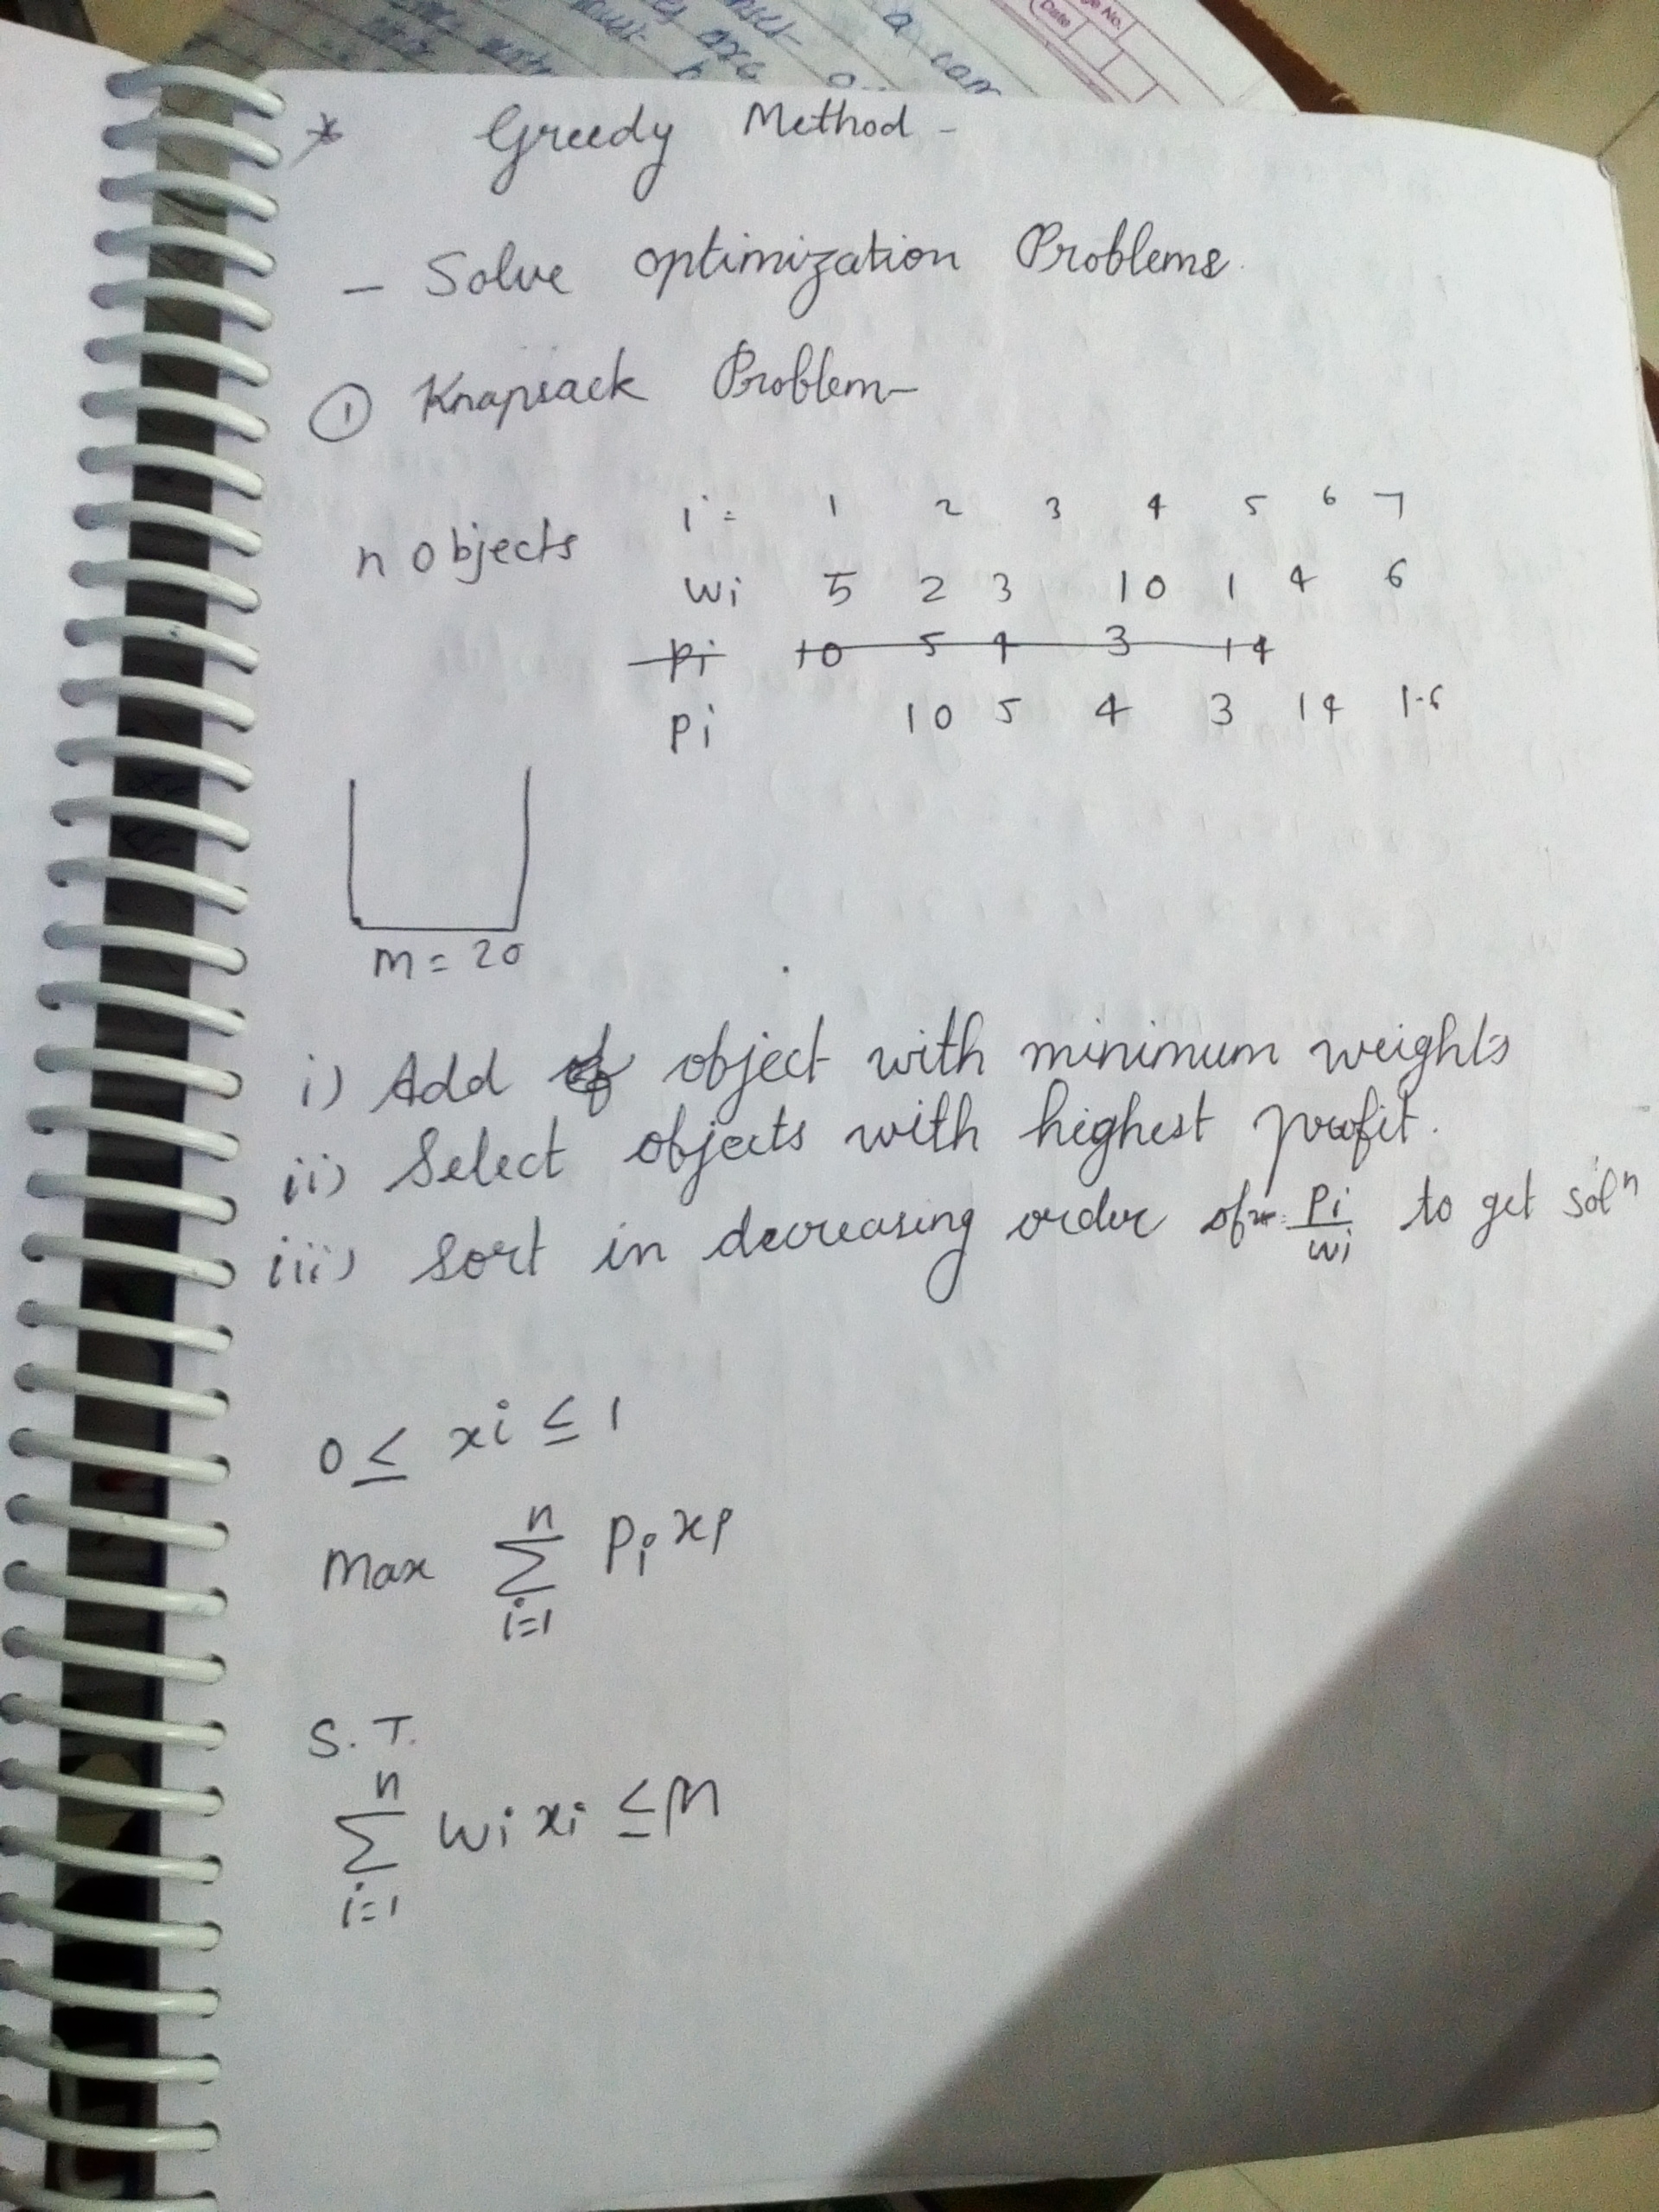 a com
Date
No.
* Greedy Method -
- Solve optimization Problems.
① Knapsack Problem-
n objects
i = 1 2 3 4 5 6 7
wi 5 2 3 10 1 4 6
pi 10 5 4 3 14
pi 10 5 4 3 14
m = 20
i) Add object with minimum weights
ii) Select objects with highest profit.
iii) Sort in decreasing order of Pi/wi to get solⁿ
0 ≤ xi ≤ 1
Max n∑i=1 Pi xi
S.T.
n∑i=1 wi xi ≤ M